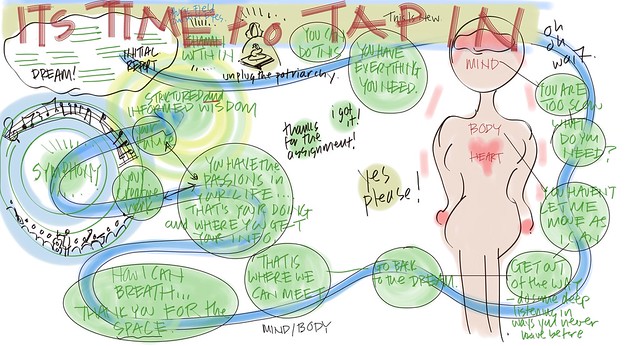 ITS TIME to TAP IN!
This is New
INITIAL
REPORT
DREAM!
WITHIN
unplug the patriarchy.
YOU CAN
DO THIS
YOU HAVE
EVERYTHING
YOU NEED.
oh
oh
wait.
MIND
YOU ARE
TOO SLOW
WHAT
DO YOU
NEED?
BODY
HEART
STRUCTURED and
INFORMED WISDOM
i got
it!
thanks
for the
assignment!
yes
please!
SYMPHONY
YOU HAVE THE
PASSIONS IN
YOUR LIFE...
THAT'S YOUR DOING
and WHERE YOU GET
YOUR INFO
YOU HAVEN'T
LET ME
MOVE AS
I CAN
GET OUT
OF THE WAY
- do some deep
listening in
ways you never
have before
GO BACK
to the DREAM.
THAT IS
WHERE WE
CAN MEET
MIND/BODY
NOW I CAN
BREATH...
THANK YOU FOR the
SPACE